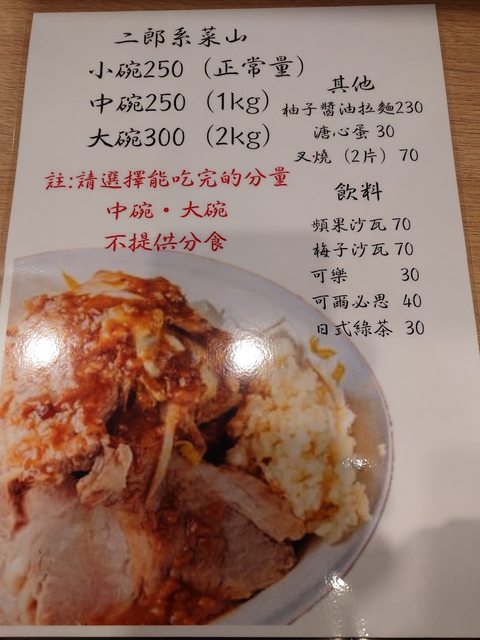 二郎系菜山
小碗250（正常量）
中碗250（1kg）
大碗300（2kg）
註:請選擇能吃完的分量
中碗・大碗
不提供分食
其他
柚子醬油拉麵230
溏心蛋 30
叉燒（2片）70
飲料
蘋果沙瓦 70
梅子沙瓦 70
可樂 30
可爾必思 40
日式綠茶 30